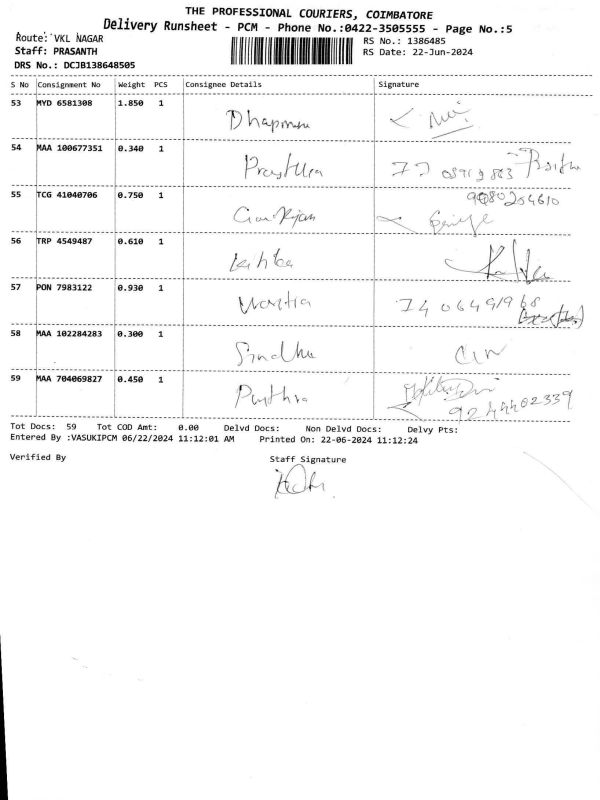 THE PROFESSIONAL COURIERS, COIMBATORE
Delivery Runsheet - PCM - Phone No.:0422-3505555 - Page No.:5
Route: VKL NAGAR
RS No.: 1386485
Staff: PRASANTH
RS Date: 22-Jun-2024
DRS No.: DCJB138648505
S No Consignment No Weight PCS Consignee Details Signature
53 MYD 6581308 1.850 1
54 MAA 100677351 0.340 1
55 TCG 41040706 0.750 1
56 TRP 4549487 0.610 1
57 PON 7983122 0.930 1
7406491968
58 MAA 102284283 0.300 1 Sindhu
59 MAA 704069827 0.450 1
Tot Docs: 59 Tot COD Amt: 0.00 Delvd Docs: Non Delvd Docs: Delvy Pts:
Entered By :VASUKIPCM 06/22/2024 11:12:01 AM Printed On: 22-06-2024 11:12:24
Verified By Staff Signature